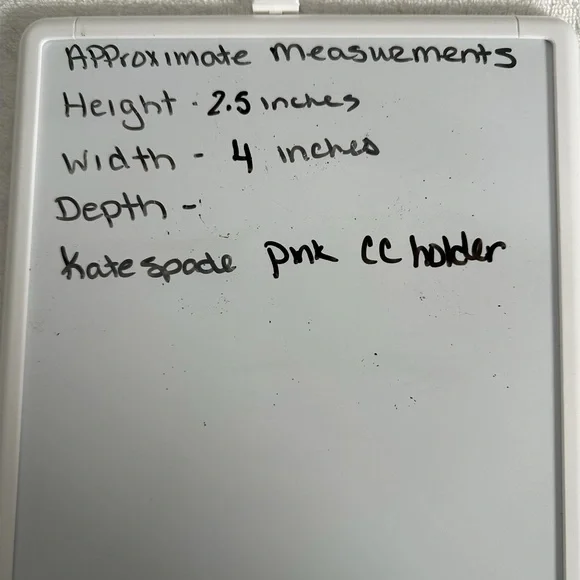 Approximate measuements
Height - 2.5 inches
Width - 4 inches
Depth -
Kate spade pnk CC holder